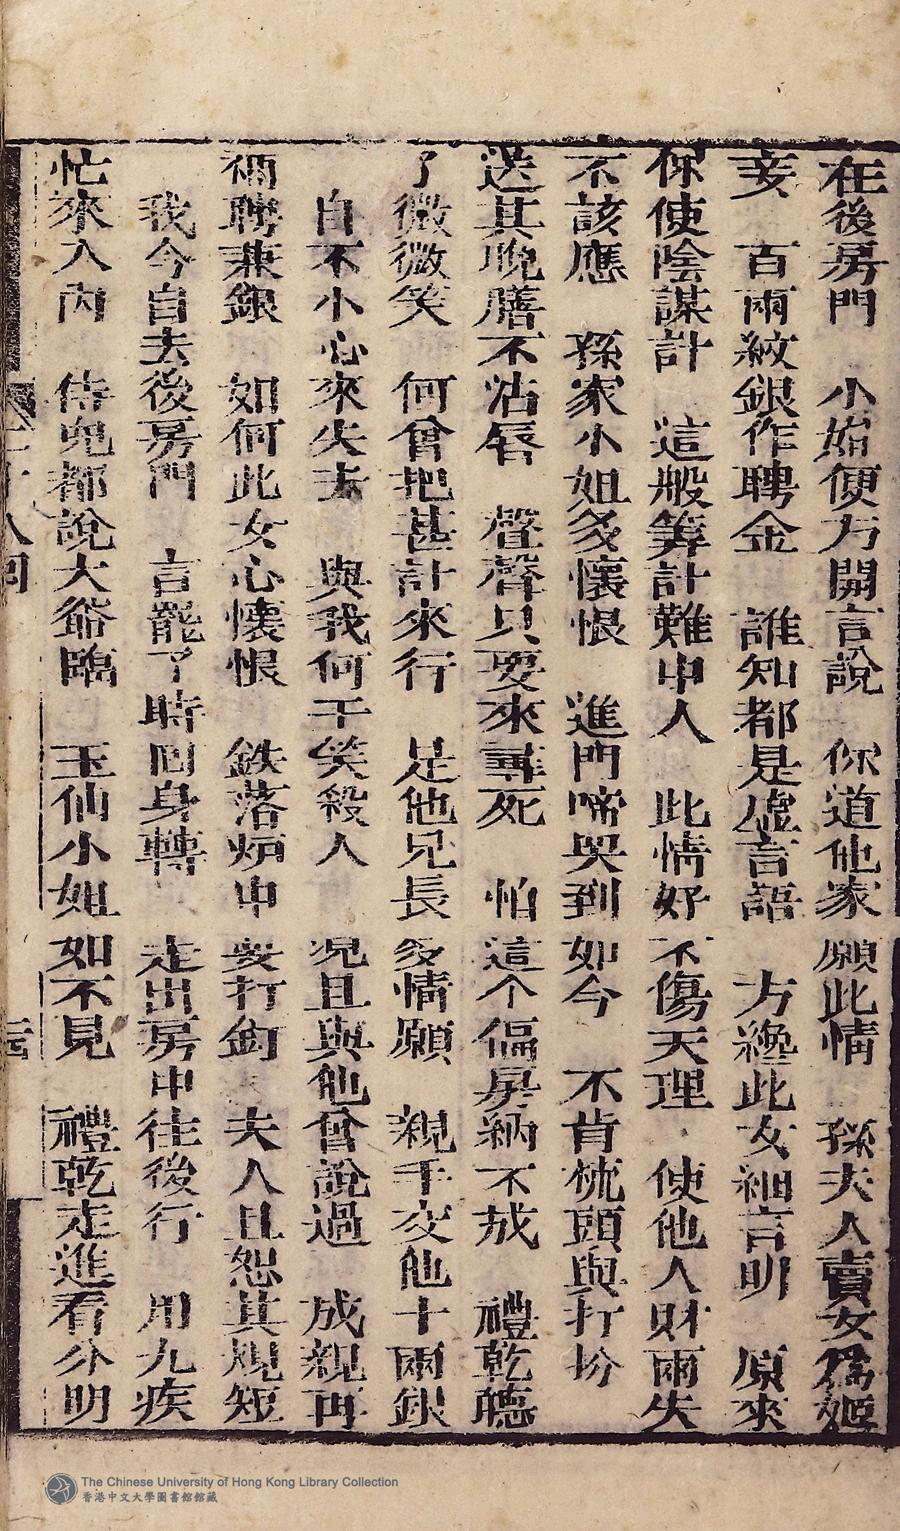 在後房門　小始便方開言說　你道他家願此情　孫夫人賣女為姬
妾　百兩紋銀作聘金　誰知都是虛言語　方纔此女細言明　原來
你使陰謀計　這般筭計難中人　此情好不傷天理　使他人財兩失
不該應　孫家小姐多懷恨　進門啼哭到如今　不肯梳頭與打扮
送其晚膳不沾唇　聲聲只要來尋死　怕這个偏房納不成　禮乾聽
了微微笑　何曾把甚計來行　是他兄長多情願　親手交他十兩銀
自不小心來失去　與我何干笑殺人　况且與他曾說過　成親再
補聘兼銀　如何此女心懷恨　鉄落炉中要打釘　夫人且恕其規短
我今自去後房門　言罷了時回身轉　走出房中往後行　用九疾
忙來入內　侍兒都說大爺臨　玉仙小姐如不見　禮乾走進看分明
The Chinese University of Hong Kong Library Collection
香港中文大學圖書館館藏